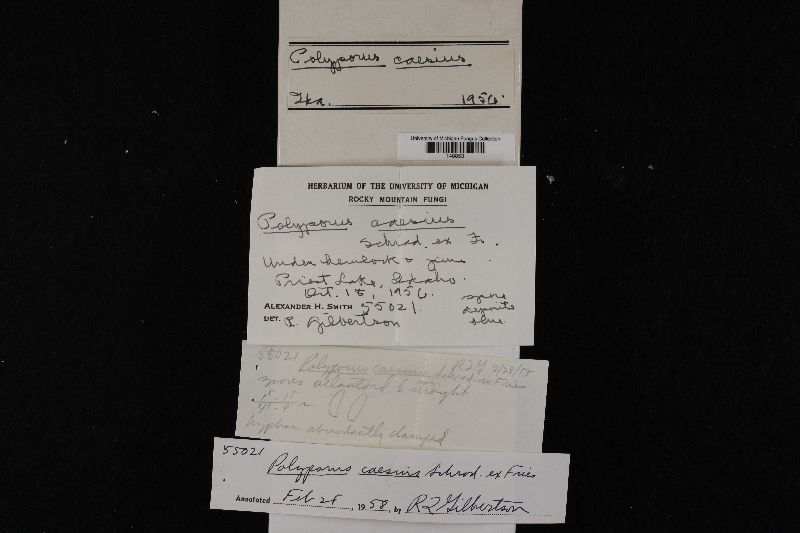 Polyporus caesius
Ida. 1956.
University of Michigan Fungus Collection
HERBARIUM OF THE UNIVERSITY OF MICHIGAN
ROCKY MOUNTAIN FUNGI
Polyporus caesius
Schrad. ex Fr.
Under hemlock &
Priest Lake, Idaho.
Oct. 15, 1956.
ALEXANDER H. SMITH 55021.
spore
definite
blue.
DET. R. Gilbertson
55021 Polyporus caesius Schrad. ex Fries
spores allantoid to straight
hyphae abundantly clamped
55021
Polyporus caesius Schrad. ex Fries
Annotated Feb 28, 1958, by R L Gilbertson